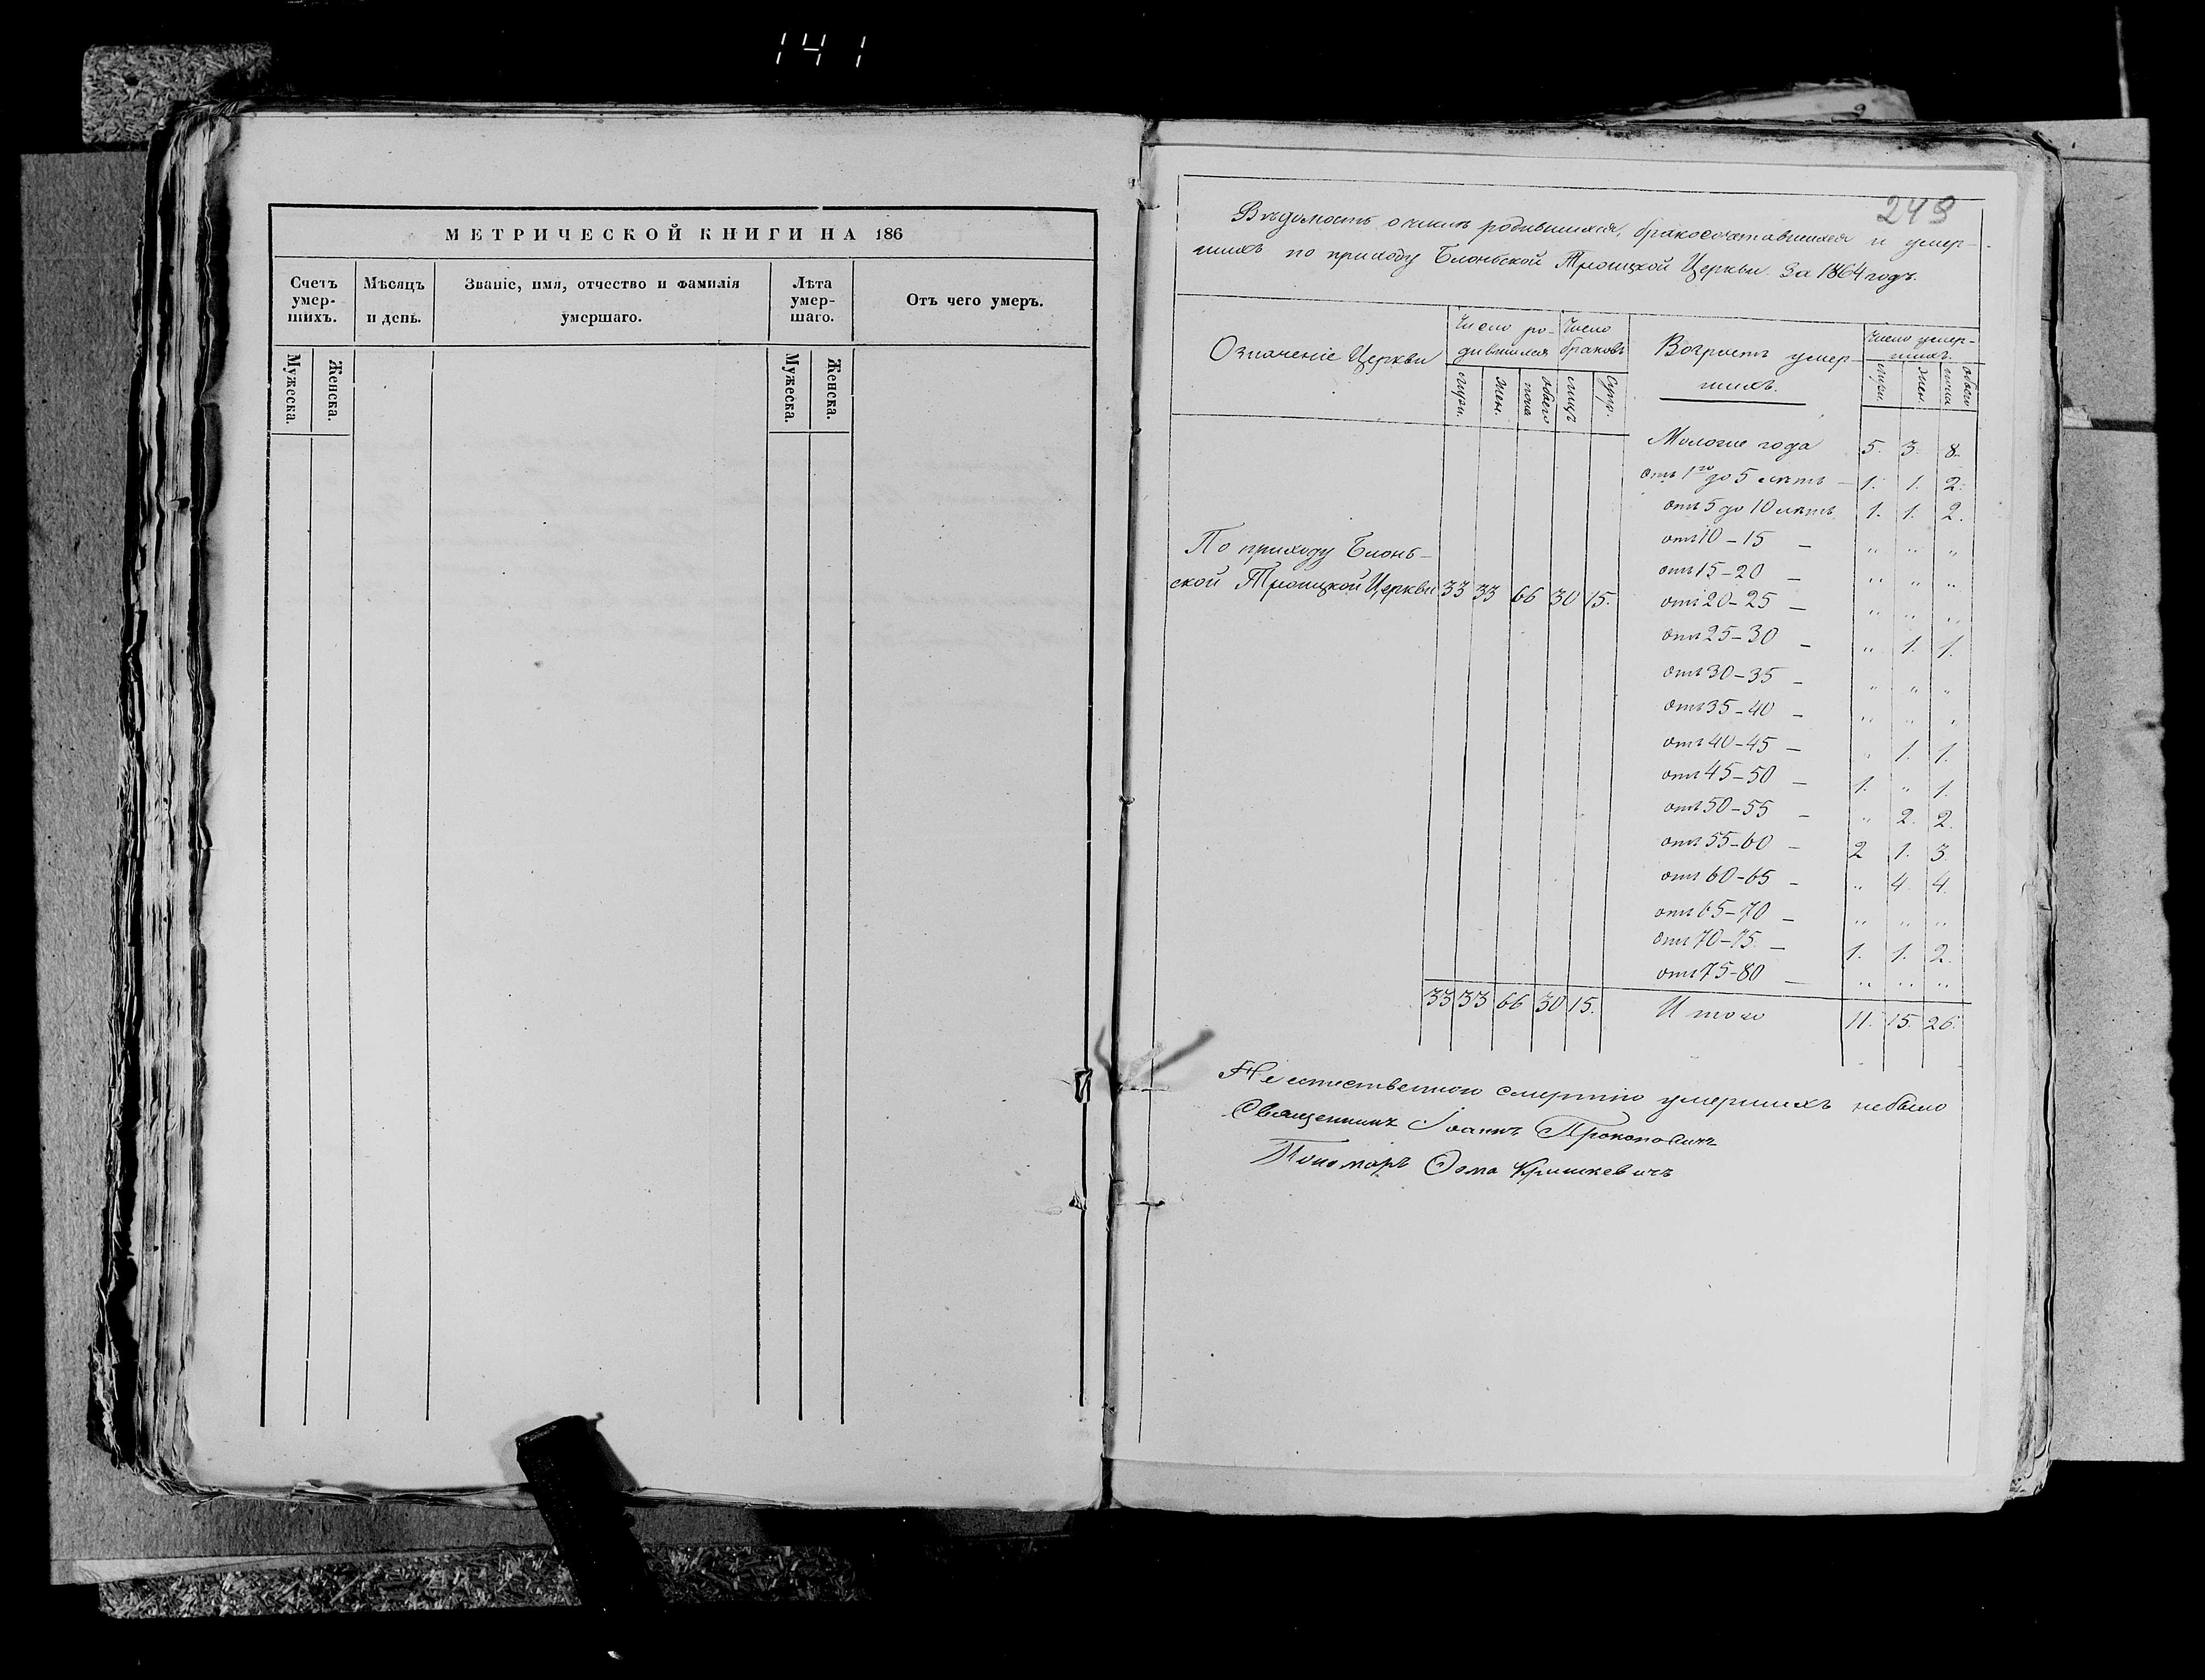 141
МЕТРИЧЕСКОЙ КНИГИ НА 186
Счетъ умер-шихъ.
Мѣсяцъ и день.
Званіе, имя, отчество и фамилія умершаго.
Лѣта умер-шаго.
Отъ чего умеръ.
Мужеска.
Женска.
Мужеска.
Женска.
249
Вѣдомость о числѣ родившихся, бракосочетавшихся и умер-
шихъ по приходу Блоньской Троицкой Церкви. За 1864 годъ.
Означеніе Церкви
Число ро-
дившихся
Число
браковъ
Возрастъ умер-
шихъ.
Число умер-
шихъ.
муж.
жен.
обаего
пола
лицъ
супр.
муж.
жен.
обаего
пола
Моложе года 5. 3. 8.
отъ 1го до 5 лѣтъ — 1. 1. 2.
отъ 5 до 10 лѣтъ 1. 1. 2.
отъ 10 – 15 — " " "
отъ 15 – 20 — " " "
По приходу Блонь-
ской Троицкой Церкви 33 33 66 30 15.
отъ 20 – 25 — " " "
отъ 25 – 30 — " 1. 1.
отъ 30 – 35 — " " "
отъ 35 – 40 — " " "
отъ 40 – 45 — " 1. 1.
отъ 45 – 50 — 1. " 1.
отъ 50 – 55 — " 2. 2.
отъ 55 – 60 — 2 1. 3.
отъ 60 – 65 — " 4. 4.
отъ 65 – 70 — " " "
отъ 70 – 75. — 1. 1. 2.
отъ 75 – 80 — " " "
33 33 66 30 15. Итого 11. 15. 26.
Не естественною смертію умершихъ небыло
Священникъ Іоаннъ Прокоповичъ
Пономарь Ѳома Кришкевичъ